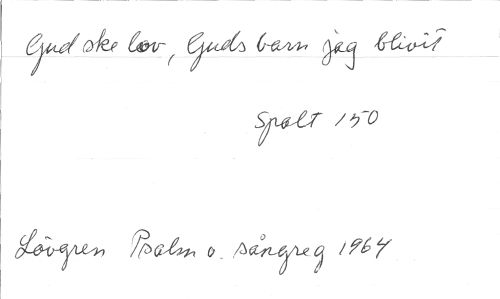 Gud ske lov, Guds barn jag blivit
Spalt 150
Lövgren Psalm o. sångreg 1964